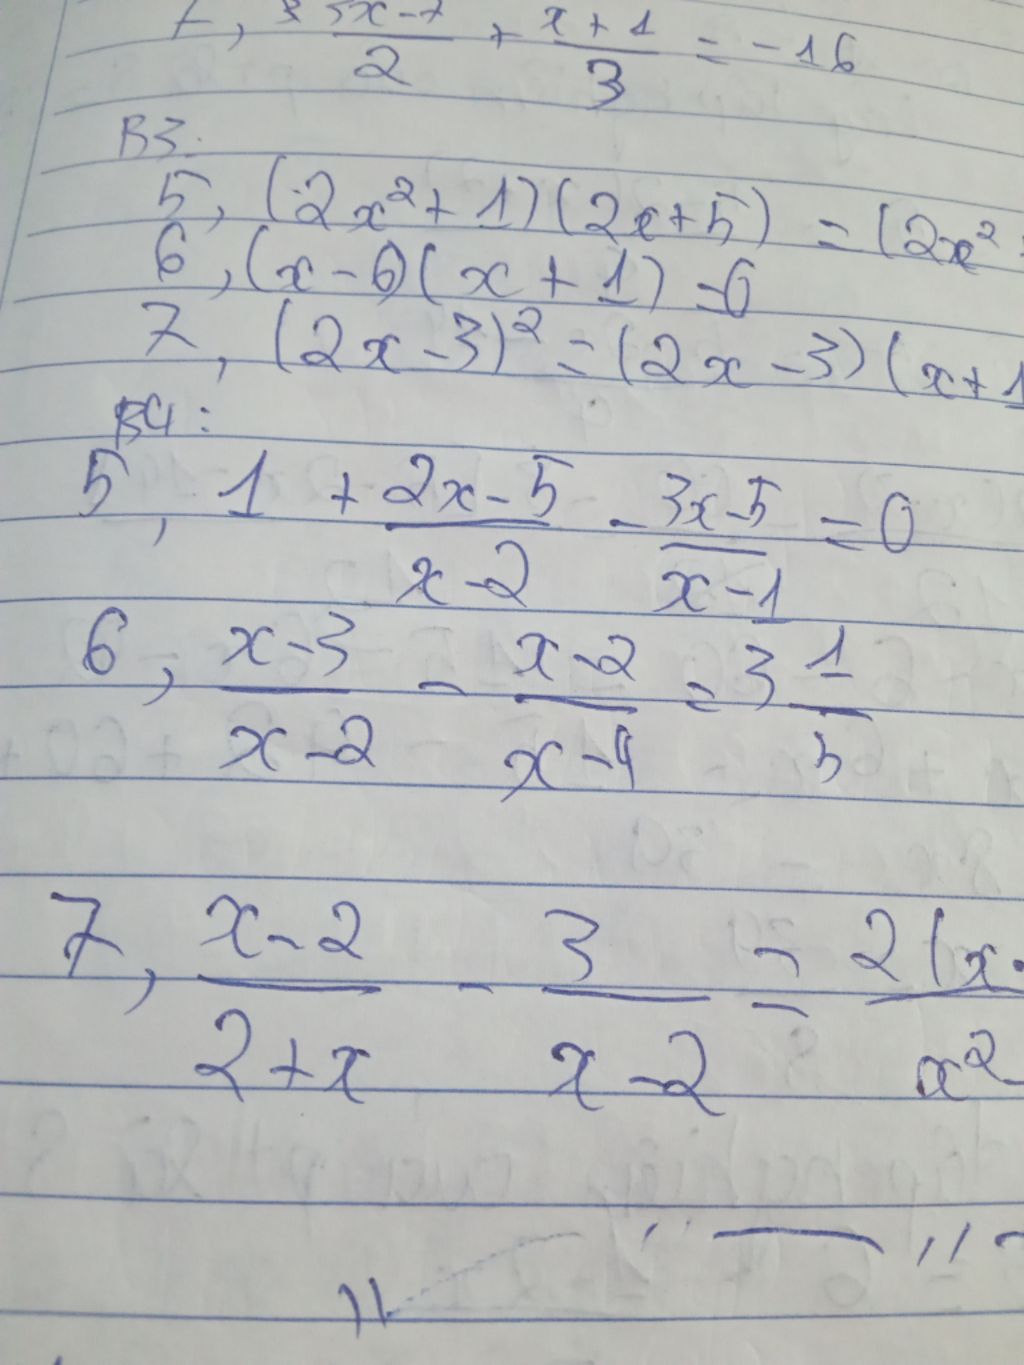 7, (5x-7)/2 + (x+1)/3 = -16
B3:
5, (2x²+1)(2x+5) = (2x²
6, (x-6)(x+1) = 0
7, (2x-3)² = (2x-3)(x+1
B4:
5, 1 + (2x-5)/(x-2) - (3x-5)/(x-1) = 0
6, (x-3)/(x-2) - (x-2)/(x-4) = 3 1/5
7, (x-2)/(2+x) - 3/(x-2) = 2(x-/x²-